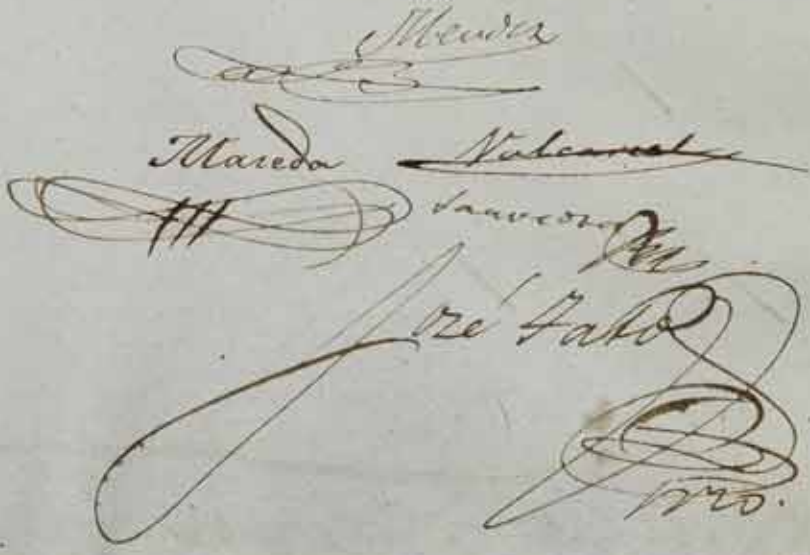 Mendez
Maceda Valcarcel
Saavedra
José Tato